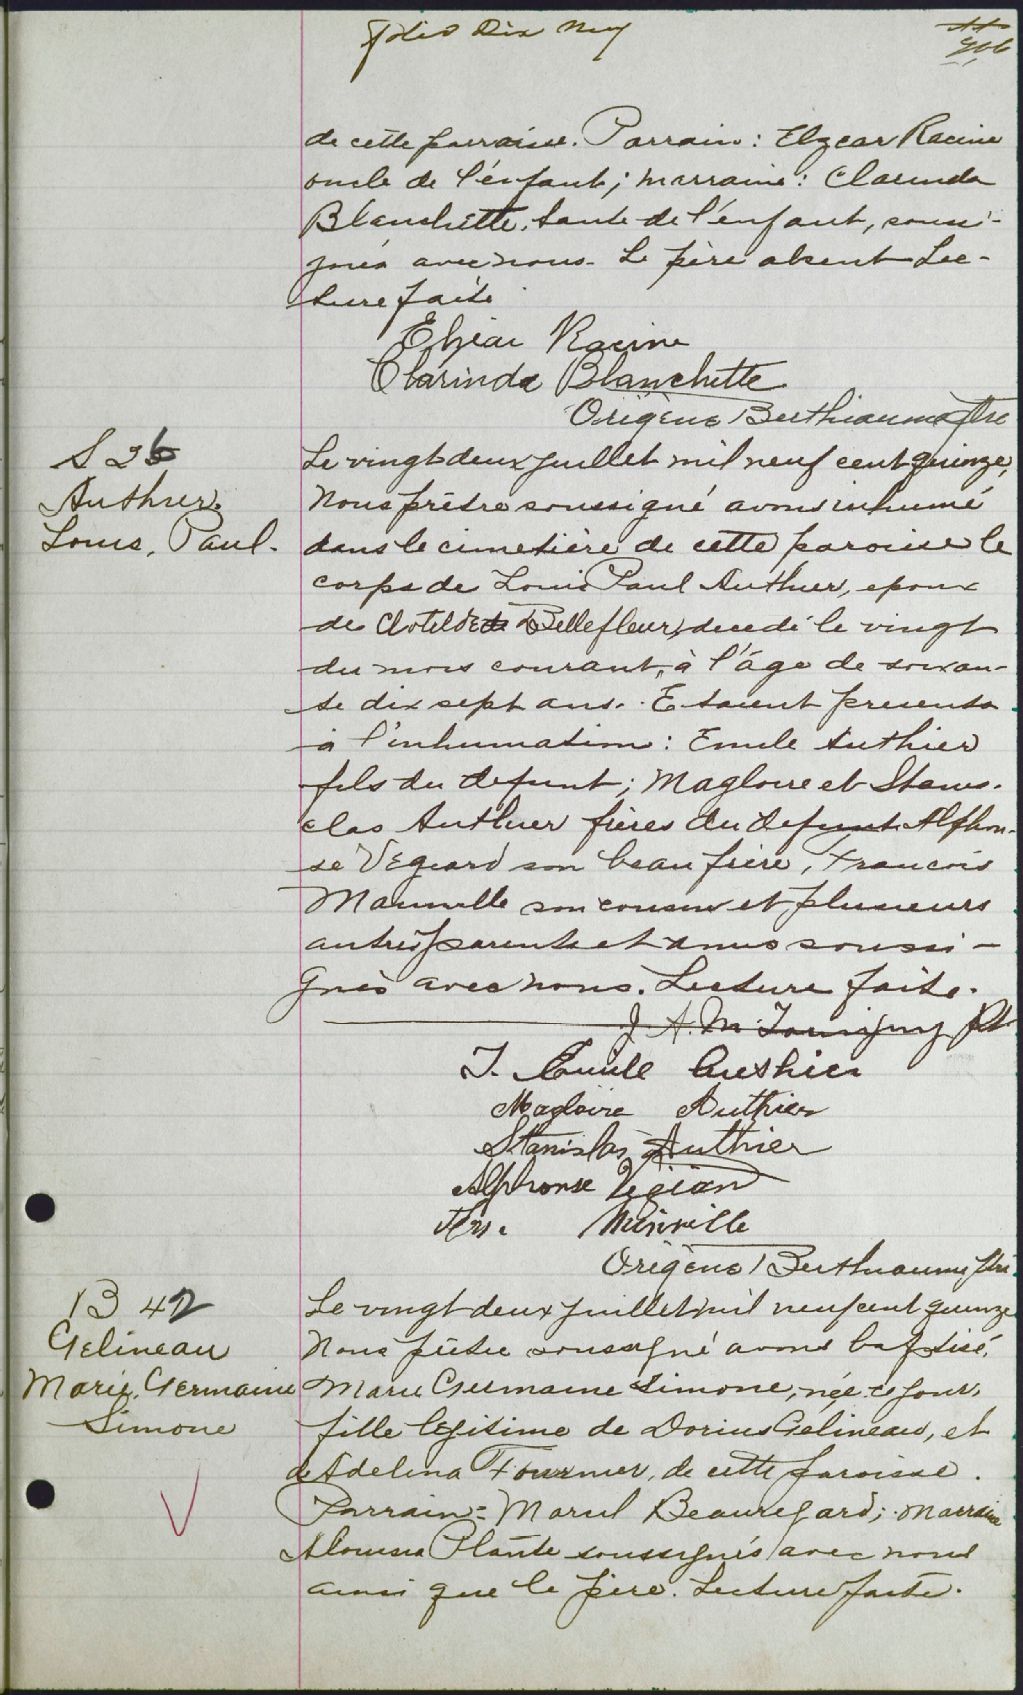 folio Dix Neuf
de cette paroisse. Parrain: Elzear Racine
oncle de l'enfant; marraine: Clarinda
Blanchette, tante de l'enfant, soussi-
gnés avec nous. Le père absent. Lec-
ture faite.
Elzéar Racine
Clarinda Blanchette
Origène Berthiaume ptre
S 26
Authier
Louis, Paul.
Le vingt deux juillet mil neuf cent quinze,
Nous prêtre soussigné avons inhumé
dans le cimetière de cette paroisse le
corps de Louis Paul Authier, epoux
de Clotilde Bellefleur, decedé le vingt
du mois courant, à l'âge de soixan-
te dix sept ans. Etaient presents
à l'inhumation: Emile Authier
fils du defunt; Magloire et Stanis-
clas Authier frères du defunt Alphon-
se Vegiard son beau frère, Francois
son cousin et plusieurs
autres parents et amis soussi-
gnés avec nous. Lecture faite.
J. A. M. Pt
J. Emile Authier
Magloire Authier
Stanislas Authier
Alphonse Vegiard
Frs. Minville
Origène Berthiaume ptre
B 42
Gelineau
Marie, Germaine
Simone
Le vingt deux juillet mil neuf cent quinze
Nous prêtre soussigné avons baptisé
Marie Germaine Simone, née ce jour,
fille legitime de Dorius Gelineau, et
de Adelina Fournier, de cette paroisse.
Parrain: Beauregard; Marraine
Plante soussignés avec nous
ainsi que le père. Lecture faite.